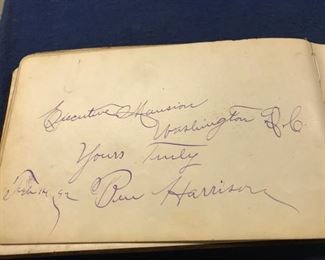 Executive Mansion
Washington D.C.
Yours Truly
Feb 14 92 Ben Harrison